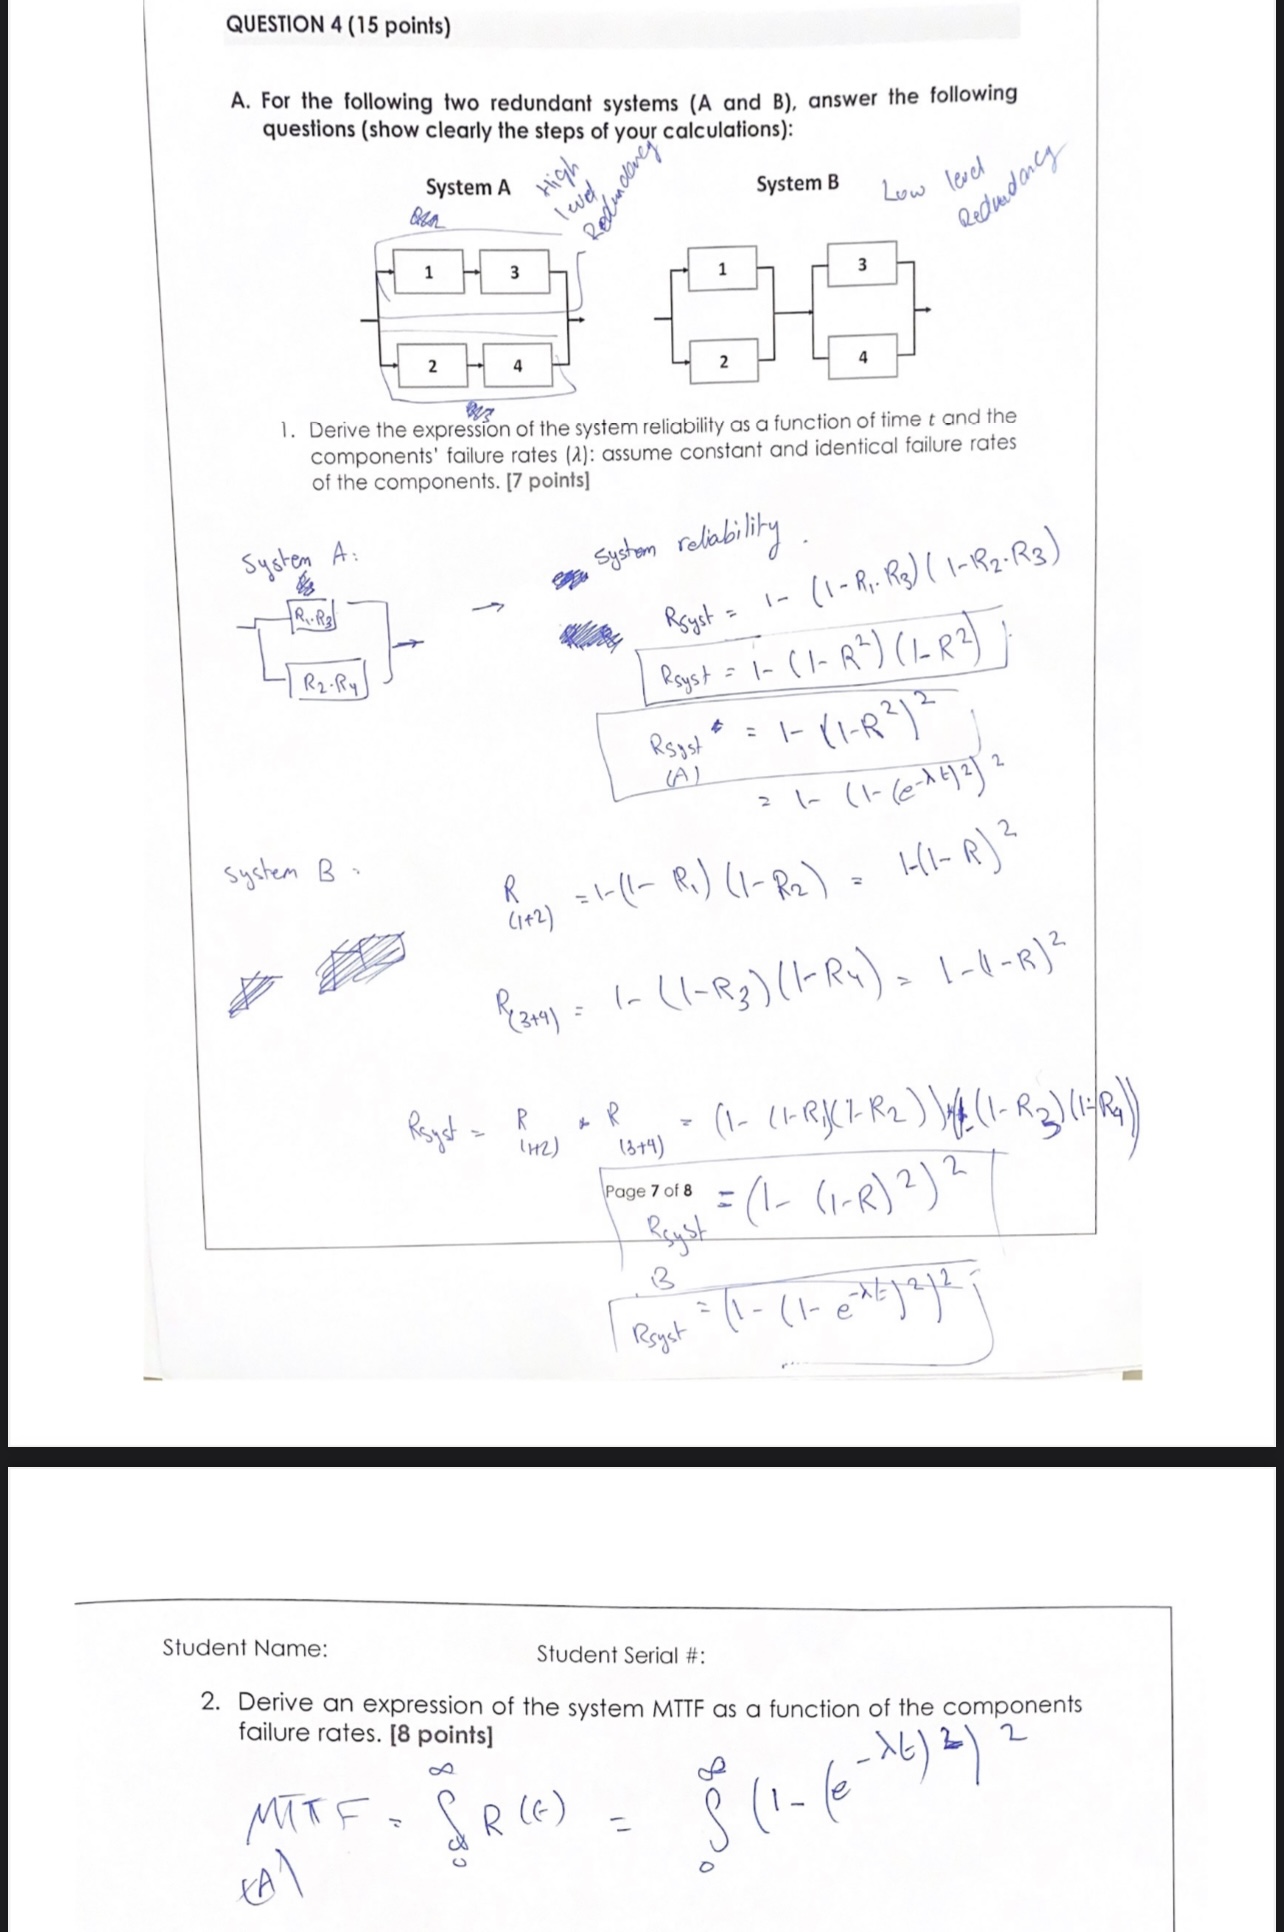 QUESTION 4 (15 points)
A. For the following two redundant systems (A and B), answer the following
questions (show clearly the steps of your calculations):
System A
High level Redundancy
System B
Low level Redundancy
1
3
2
4
1
2
3
4
1. Derive the expression of the system reliability as a function of time t and the
components' failure rates (λ): assume constant and identical failure rates
of the components. [7 points]
System A:
R₁·R₃
R₂·R₄
→ System reliability.
Rsyst = 1- (1-R₁·R₃)(1-R₂·R₃)
Rsyst = 1- (1-R²)(1-R²)
Rsyst (A) = 1- (1-R²)²
= 1- (1-(e^-λt)²)²
System B:
R(1+2) = 1-(1-R₁)(1-R₂) = 1-(1-R)²
R(3+4) = 1- (1-R₃)(1-R₄) = 1-(1-R)²
Rsyst = R(1+2) * R(3+4) = (1- (1-R₁)(1-R₂))(1-(1-R₃)(1-R₄))
Page 7 of 8
Rsyst B = (1- (1-R)²)²
Rsyst = (1- (1- e^-λt)²)²
Student Name:
Student Serial #:
2. Derive an expression of the system MTTF as a function of the components
failure rates. [8 points]
MTTF (A) = ∫₀^∞ R(t) = ∫₀^∞ (1-(e^-λt)²)²